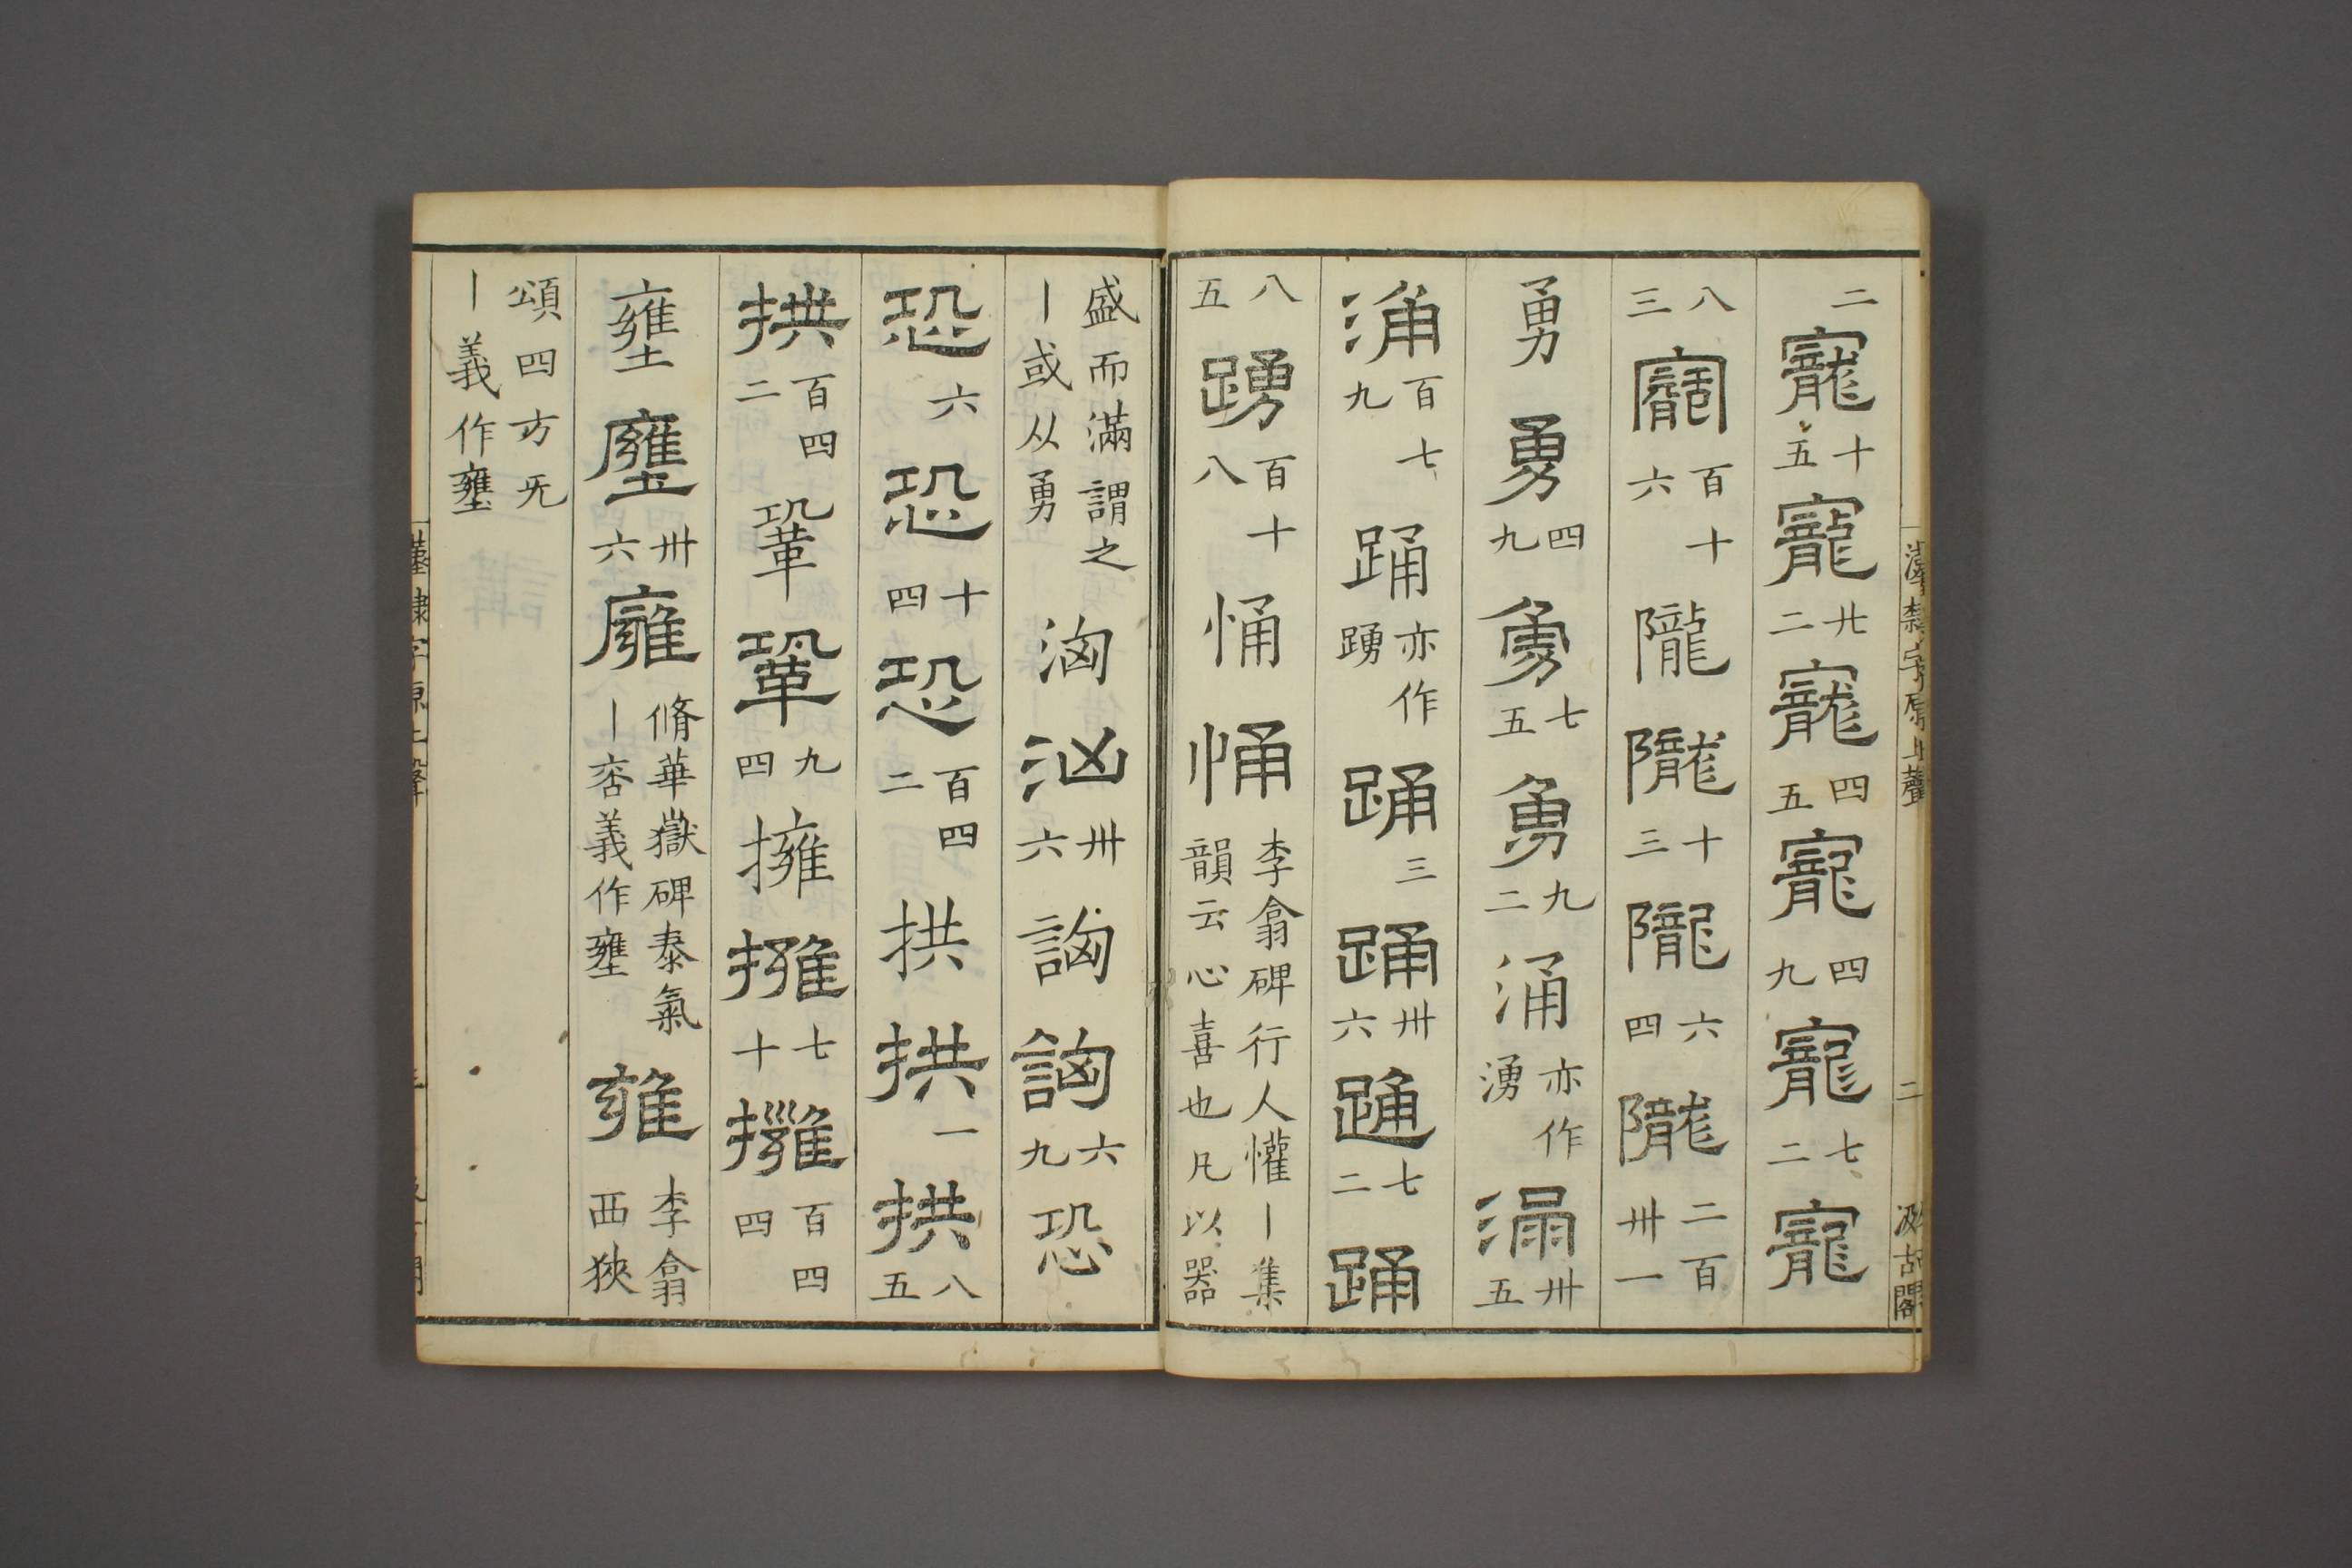 漢隸字原上聲 二 汲古閣
二 寵 十五 寵 廿二 寵 四五 寵 四九 寵 七二 寵
八三 寵 百十六 隴 隴 十三 隴 六四 隴 二百卅一
勇 勇 四九 勇 七五 勇 九二 涌 亦作湧 涌 卅五
涌 百七九 踊 亦作踴 踊 三 踊 卅六 踊 七二 踊
八五 踴 百十八 悀 悀 李翕碑行人懽丨集韻云心喜也凡以器
盛而滿謂之丨或从勇 洶 汹 卅六 詾 詾 六九 恐
恐 六 恐 十四 恐 百四二 拱 拱 一 拱 八五
拱 百四二 鞏 鞏 九四 擁 擁 七十 擁 百四四
壅 壅 卅六 廱 脩華嶽碑泰氣丨否義作壅 雍 李翕西狹
頌四方旡丨義作壅